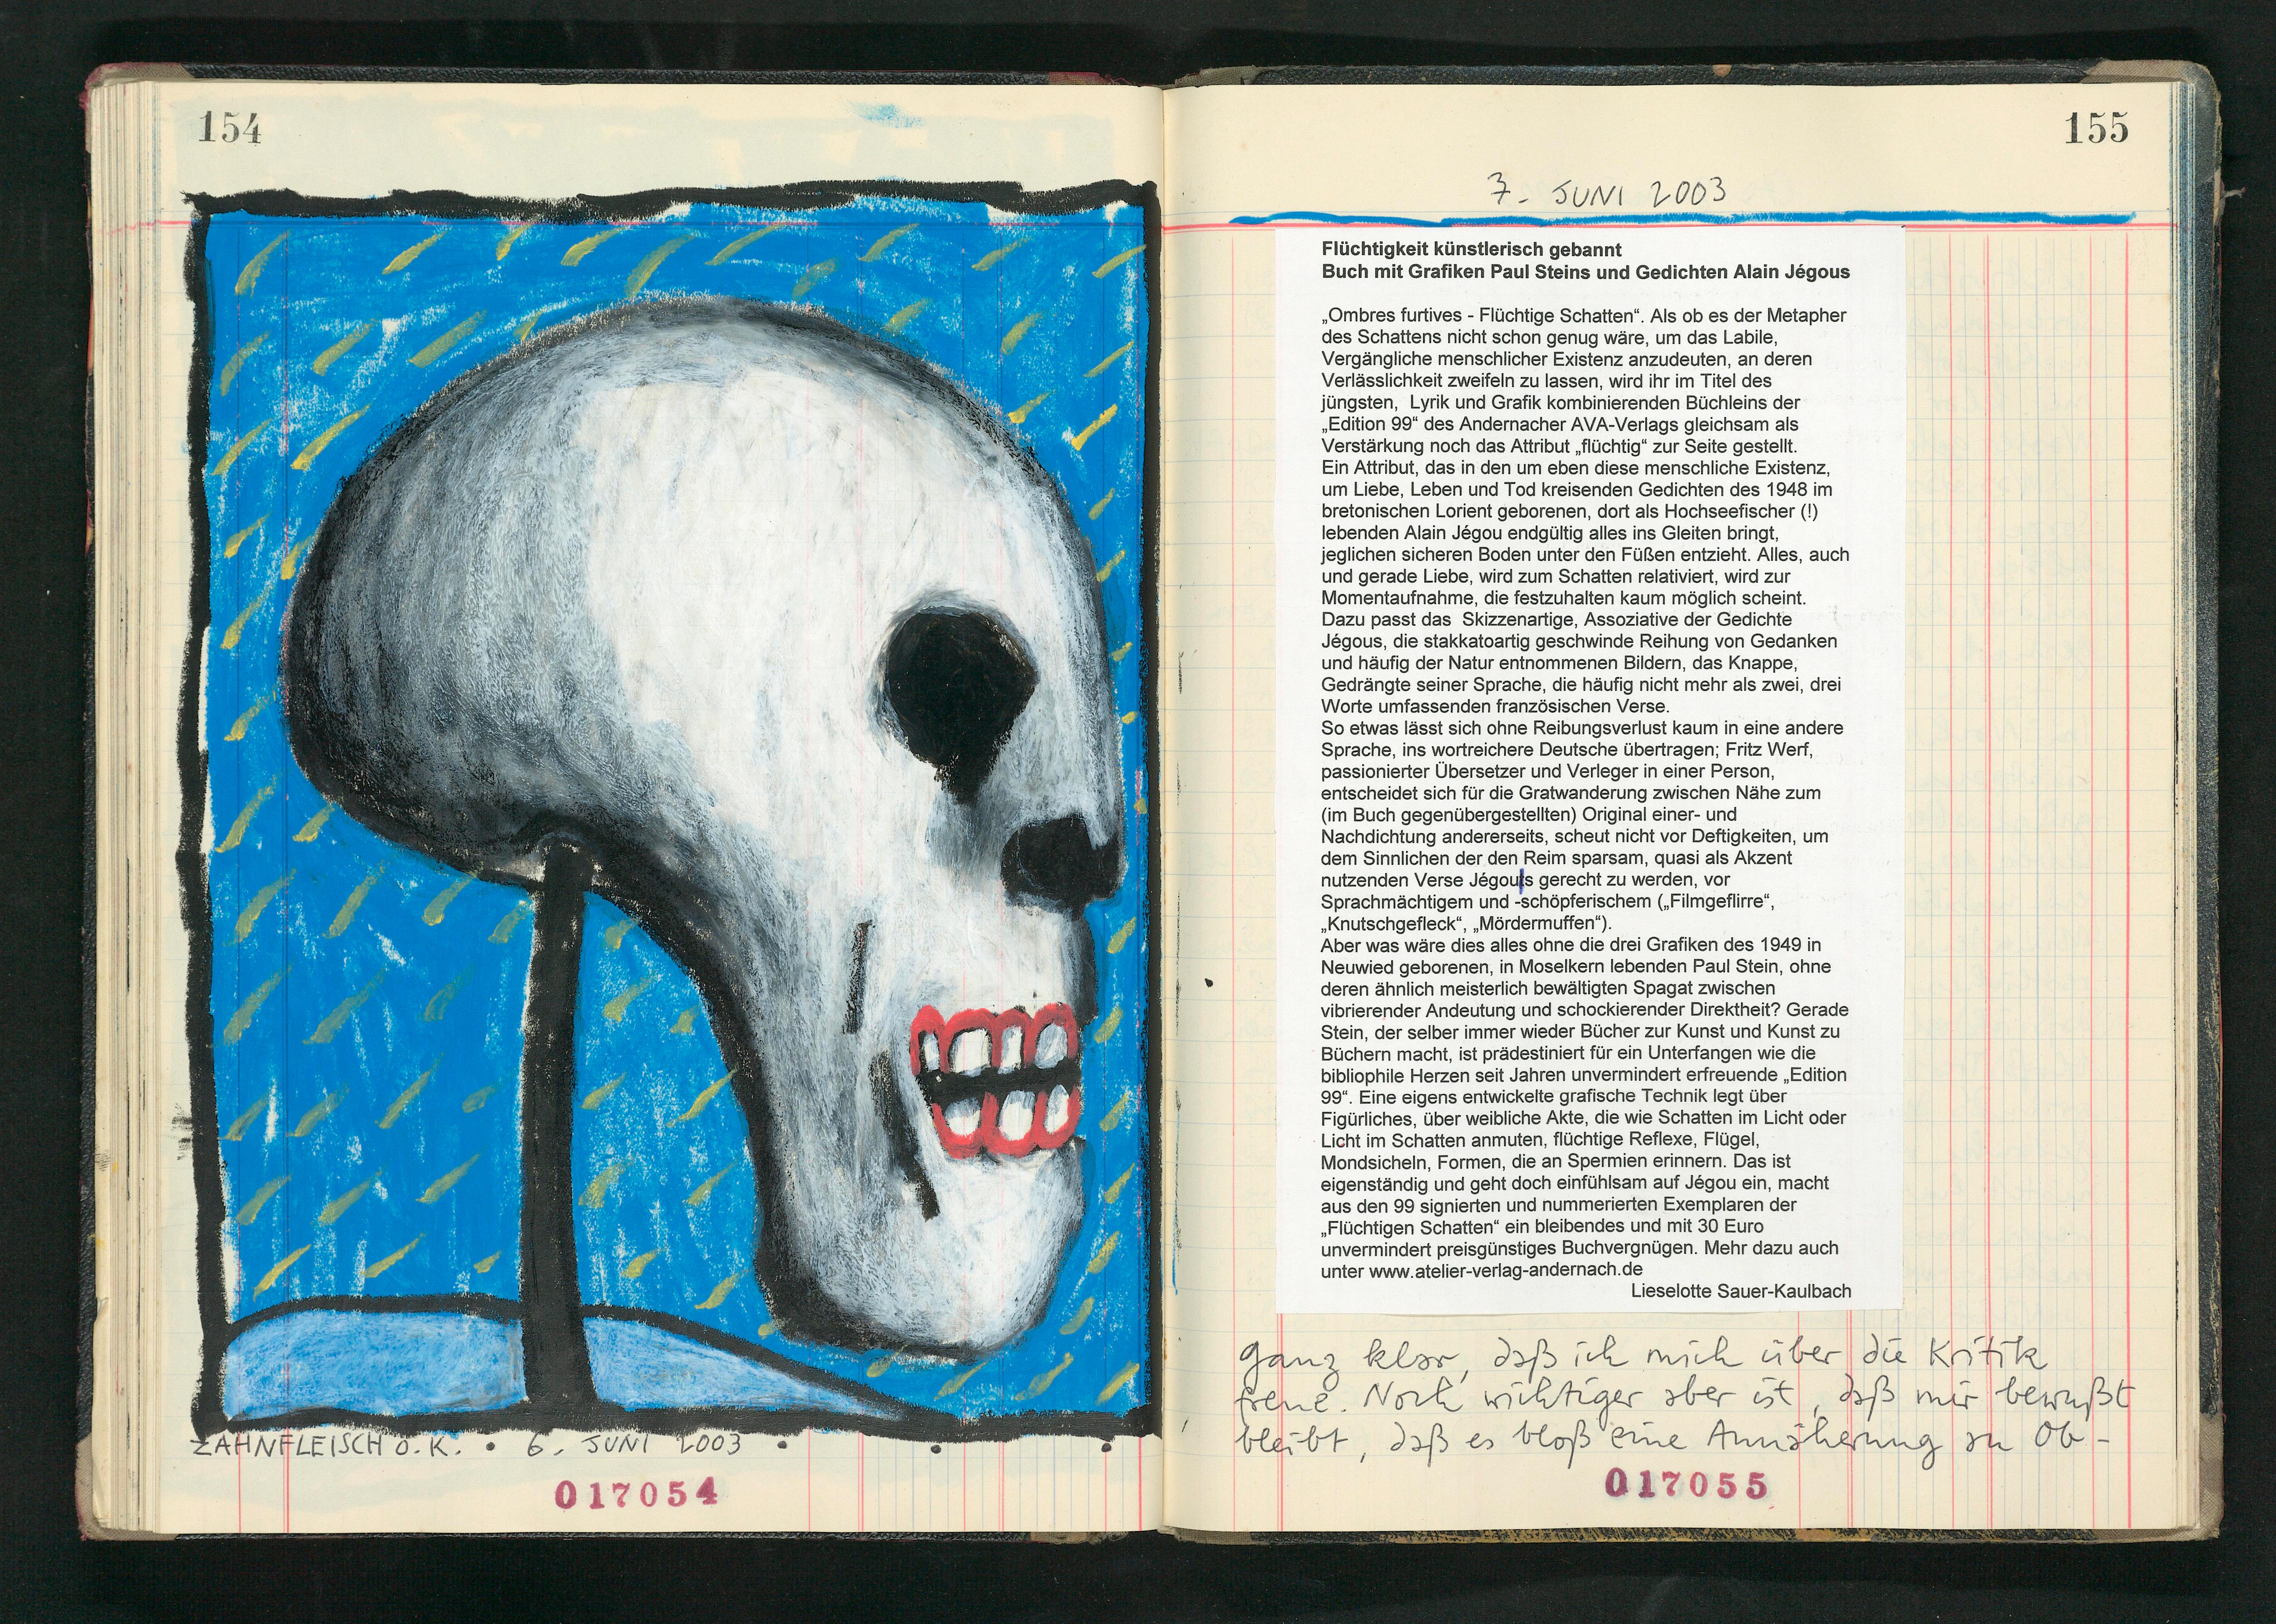 154
ZAHNFLEISCH O.K. • 6. JUNI 2003 • • •
017054
155
7. JUNI 2003
Flüchtigkeit künstlerisch gebannt
Buch mit Grafiken Paul Steins und Gedichten Alain Jégous
„Ombres furtives - Flüchtige Schatten“. Als ob es der Metapher
des Schattens nicht schon genug wäre, um das Labile,
Vergängliche menschlicher Existenz anzudeuten, an deren
Verlässlichkeit zweifeln zu lassen, wird ihr im Titel des
jüngsten, Lyrik und Grafik kombinierenden Büchleins der
„Edition 99“ des Andernacher AVA-Verlags gleichsam als
Verstärkung noch das Attribut „flüchtig“ zur Seite gestellt.
Ein Attribut, das in den um eben diese menschliche Existenz,
um Liebe, Leben und Tod kreisenden Gedichten des 1948 im
bretonischen Lorient geborenen, dort als Hochseefischer (!)
lebenden Alain Jégou endgültig alles ins Gleiten bringt,
jeglichen sicheren Boden unter den Füßen entzieht. Alles, auch
und gerade Liebe, wird zum Schatten relativiert, wird zur
Momentaufnahme, die festzuhalten kaum möglich scheint.
Dazu passt das Skizzenartige, Assoziative der Gedichte
Jégous, die stakkatoartig geschwinde Reihung von Gedanken
und häufig der Natur entnommenen Bildern, das Knappe,
Gedrängte seiner Sprache, die häufig nicht mehr als zwei, drei
Worte umfassenden französischen Verse.
So etwas lässt sich ohne Reibungsverlust kaum in eine andere
Sprache, ins wortreichere Deutsche übertragen; Fritz Werf,
passionierter Übersetzer und Verleger in einer Person,
entscheidet sich für die Gratwanderung zwischen Nähe zum
(im Buch gegenübergestellten) Original einer- und
Nachdichtung andererseits, scheut nicht vor Deftigkeiten, um
dem Sinnlichen der den Reim sparsam, quasi als Akzent
nutzenden Verse Jégous gerecht zu werden, vor
Sprachmächtigem und -schöpferischem („Filmgeflirre“,
„Knutschgefleck“, „Mördermuffen“).
Aber was wäre dies alles ohne die drei Grafiken des 1949 in
Neuwied geborenen, in Moselkern lebenden Paul Stein, ohne
deren ähnlich meisterlich bewältigten Spagat zwischen
vibrierender Andeutung und schockierender Direktheit? Gerade
Stein, der selber immer wieder Bücher zur Kunst und Kunst zu
Büchern macht, ist prädestiniert für ein Unterfangen wie die
bibliophile Herzen seit Jahren unvermindert erfreuende „Edition
99“. Eine eigens entwickelte grafische Technik legt über
Figürliches, über weibliche Akte, die wie Schatten im Licht oder
Licht im Schatten anmuten, flüchtige Reflexe, Flügel,
Mondsicheln, Formen, die an Spermien erinnern. Das ist
eigenständig und geht doch einfühlsam auf Jégou ein, macht
aus den 99 signierten und nummerierten Exemplaren der
„Flüchtigen Schatten“ ein bleibendes und mit 30 Euro
unvermindert preisgünstiges Buchvergnügen. Mehr dazu auch
unter www.atelier-verlag-andernach.de
Lieselotte Sauer-Kaulbach
ganz klar, daß ich mich über die Kritik
freue. Noch wichtiger aber ist, daß mir bewußt
bleibt, daß es bloß eine Annäherung an Ob-
017055